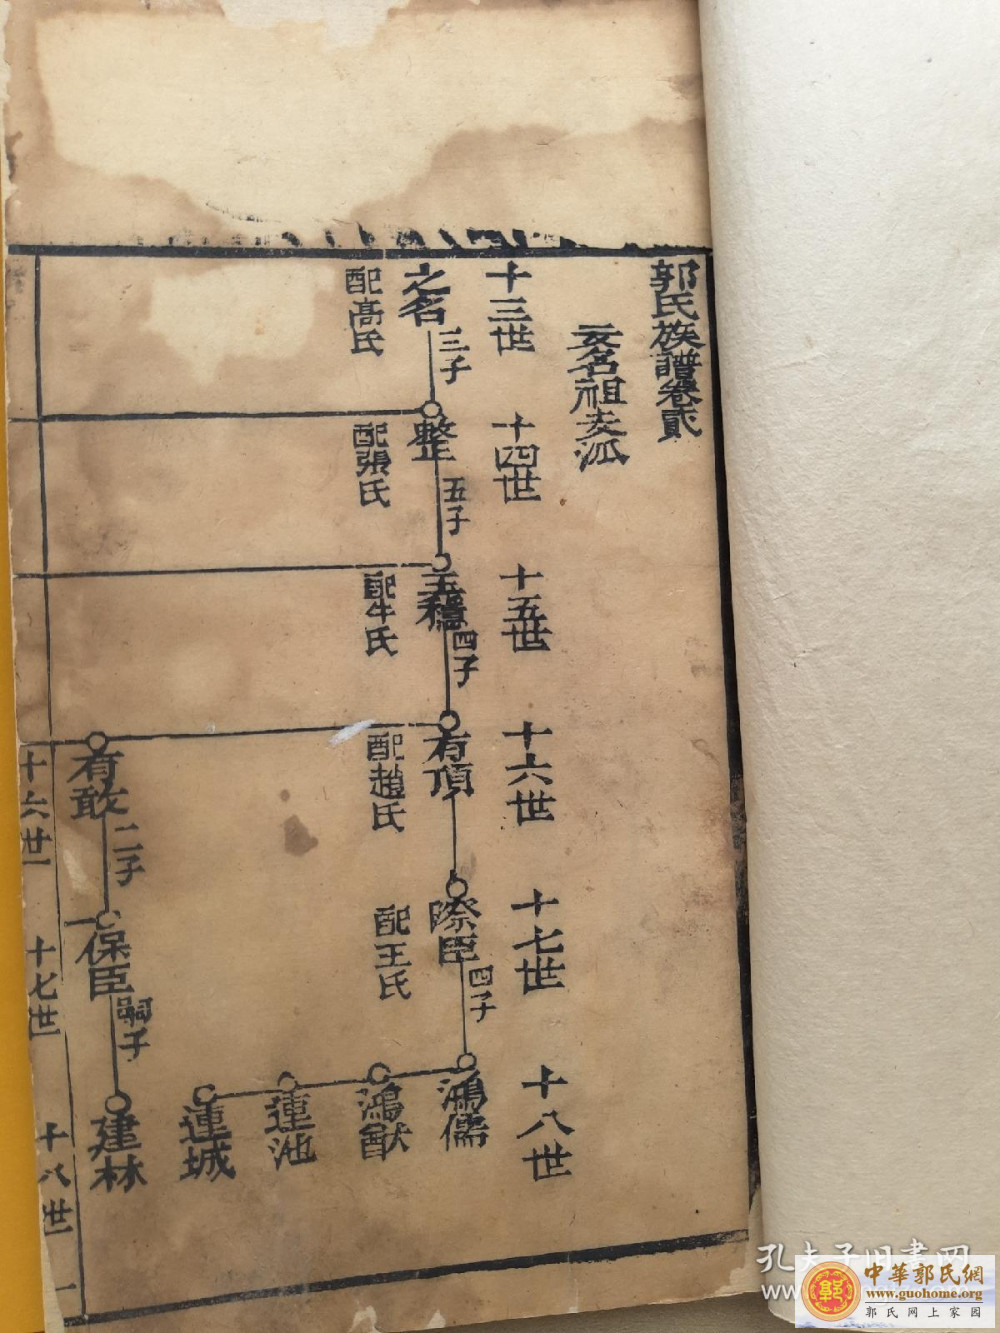 郭氏族譜卷貳
名祖支派
十三世
之名
三子
配高氏
十四世
整
五子
配張氏
十五世
玉穩
四子
配牛氏
十六世
有頂
配趙氏
有敢
二子
十七世
際臣
四子
配王氏
保臣
嗣子
十八世
鴻儒
鴻猷
連池
連城
建林
十六世
十七世
十八世
一
孔夫子旧书网
中華郭氏網
www.guohome.org
郭氏网上家园